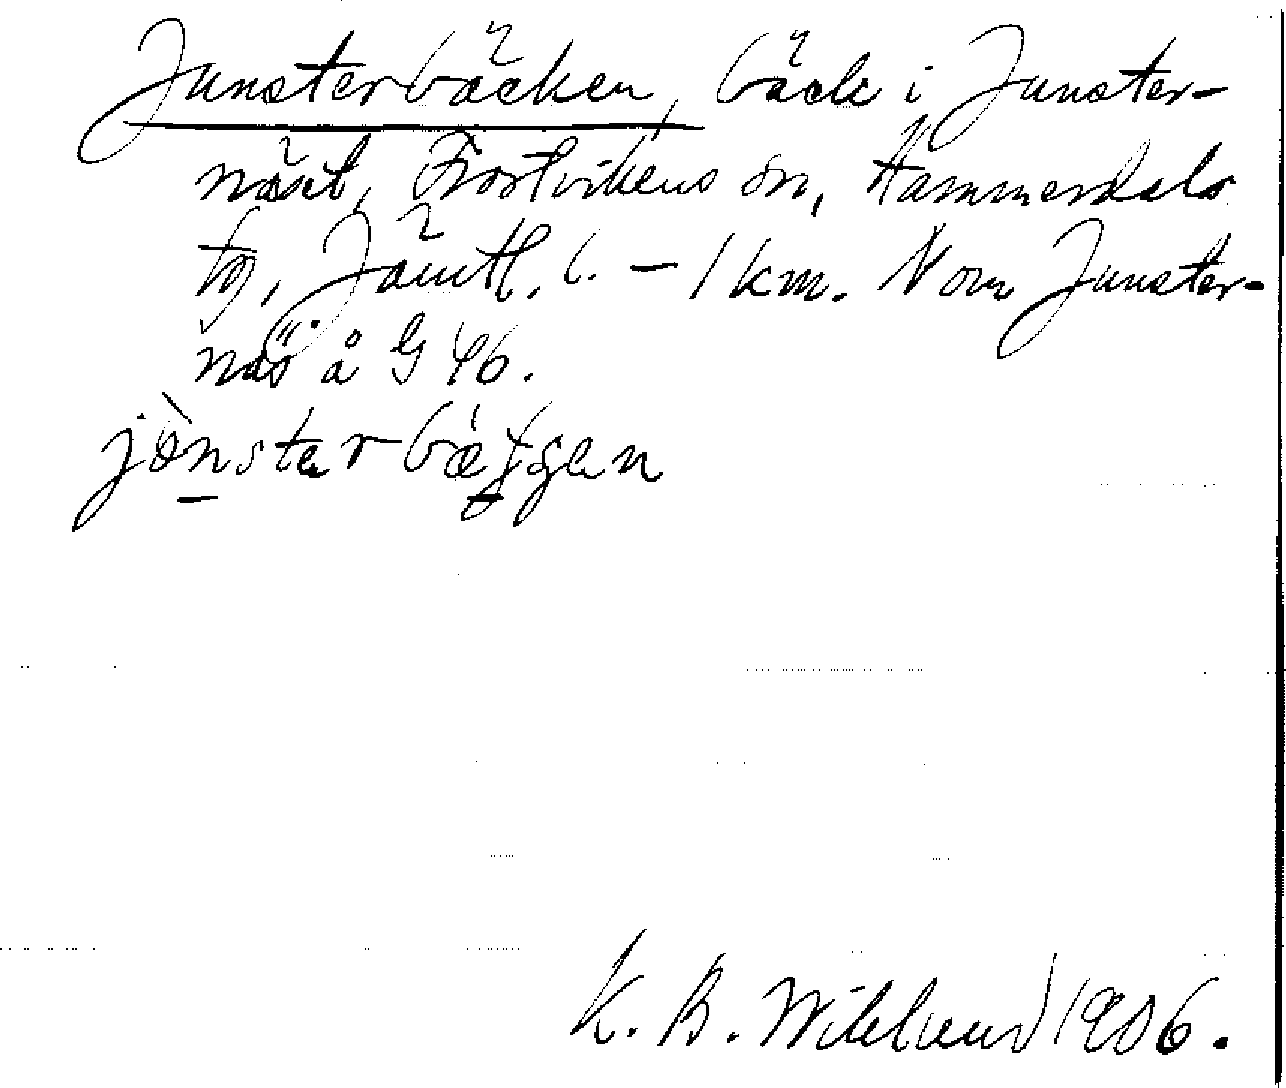 Junsterbäcken, bäck i Junster-
näset, Frostvikens sn, Hammerdals
tg, Jämtl. l. – 1 km. N om Junster-
näs å G 46.
jònsterbætgen
K. B. Wiklund 1906.